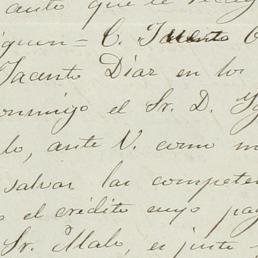 ante que se
iguen = C. Jacinto
Jacinto Díaz en los
omingo el Sr. D.
lo, ante V. como m
salvar las competen
o el crédito cuyo pag
Sr. Malo, es justo